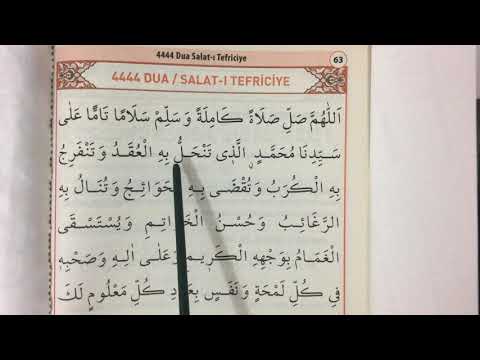 4444 Dua Salat-ı Tefriciye
63
4444 DUA / SALAT-I TEFRİCİYE
اَللّٰهُمَّ صَلِّ صَلَاةً كَامِلَةً وَسَلِّمْ سَلَامًا تَامًّا عَلٰى
سَيِّدِنَا مُحَمَّدٍ الَّذٖى تَنْحَلُّ بِهِ الْعُقَدُ وَتَنْفَرِجُ
بِهِ الْكُرَبُ وَتُقْضٰى بِهِ الْحَوَائِجُ وَتُنَالُ بِهِ
الرَّغَائِبُ وَحُسْنُ الْخَوَاتِمِ وَيُسْتَسْقَى
الْغَمَامُ بِوَجْهِهِ الْكَرٖيمِ وَعَلٰى اٰلِهٖ وَصَحْبِهٖ
فٖى كُلِّ لَمْحَةٍ وَنَفَسٍ بِعَدَدِ كُلِّ مَعْلُومٍ لَكَ